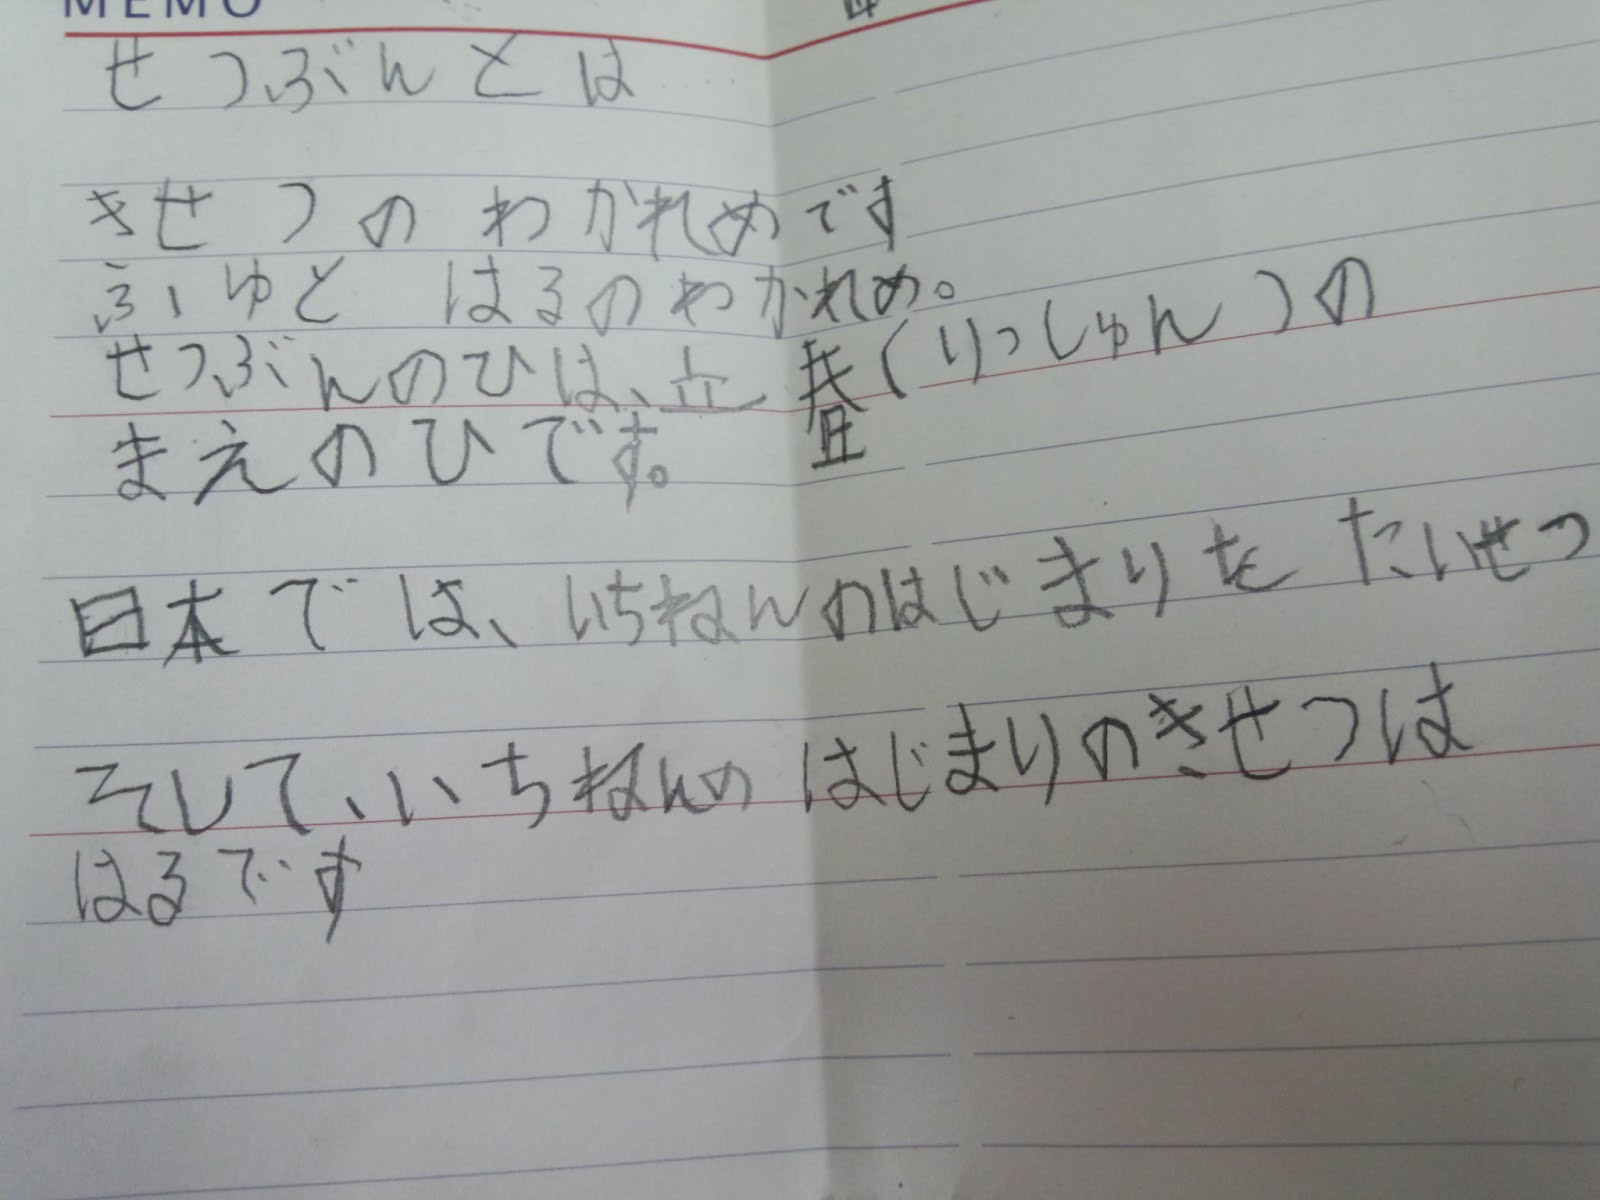 MEMO
せつぶんとは
きせつのわかれめです
ふゆと はるのわかれめ。
せつぶんのひは、立春(りっしゅん)の
まえのひです。
日本では、いちねんのはじまりをたいせつ
そして、いちねんのはじまりのきせつは
はるです